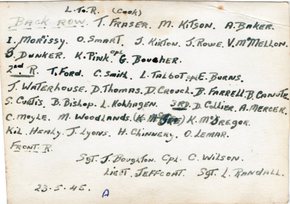 L. To R. (Cook)
BACK ROW. T. FRASER. M. KITSON. A. BAKER.
I. MORISSY. O. SMART. J. KIRTON. J. ROWE. V. McMELLON.
S. DUNKER. K. PINK. Cpl G. BOUGHER.
2nd R. T. FORD. C. SMITH. L. TALBOT Cpl E. BURNS.
J. WATERHOUSE. D. THOMAS. D. CROUCH. B. FARRELL. B. CANUTE.
S. COTTIS. B. BISHOP. L. KOHAGEN. 3RD. D. COLLIER. A. MERCER.
C. MOYLE. M. WOODLANDS. K. McGREGOR.
KIL. HEALY. J. LYONS. H. CHINNERY. O. LEMAR.
FRONT. R.
Sgt. J. BOUGHTON. Cpl. C. WILSON.
LIEUT. JEFFCOAT. SGT. L. RANDALL.
23-5-45. A